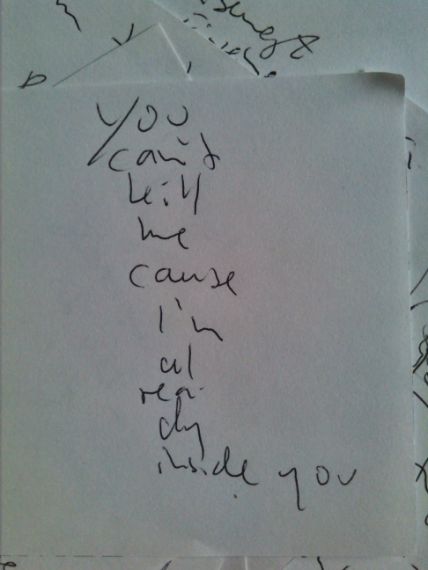 you
can't
kill
me
cause
I'm
al
rea-
dy
inside you